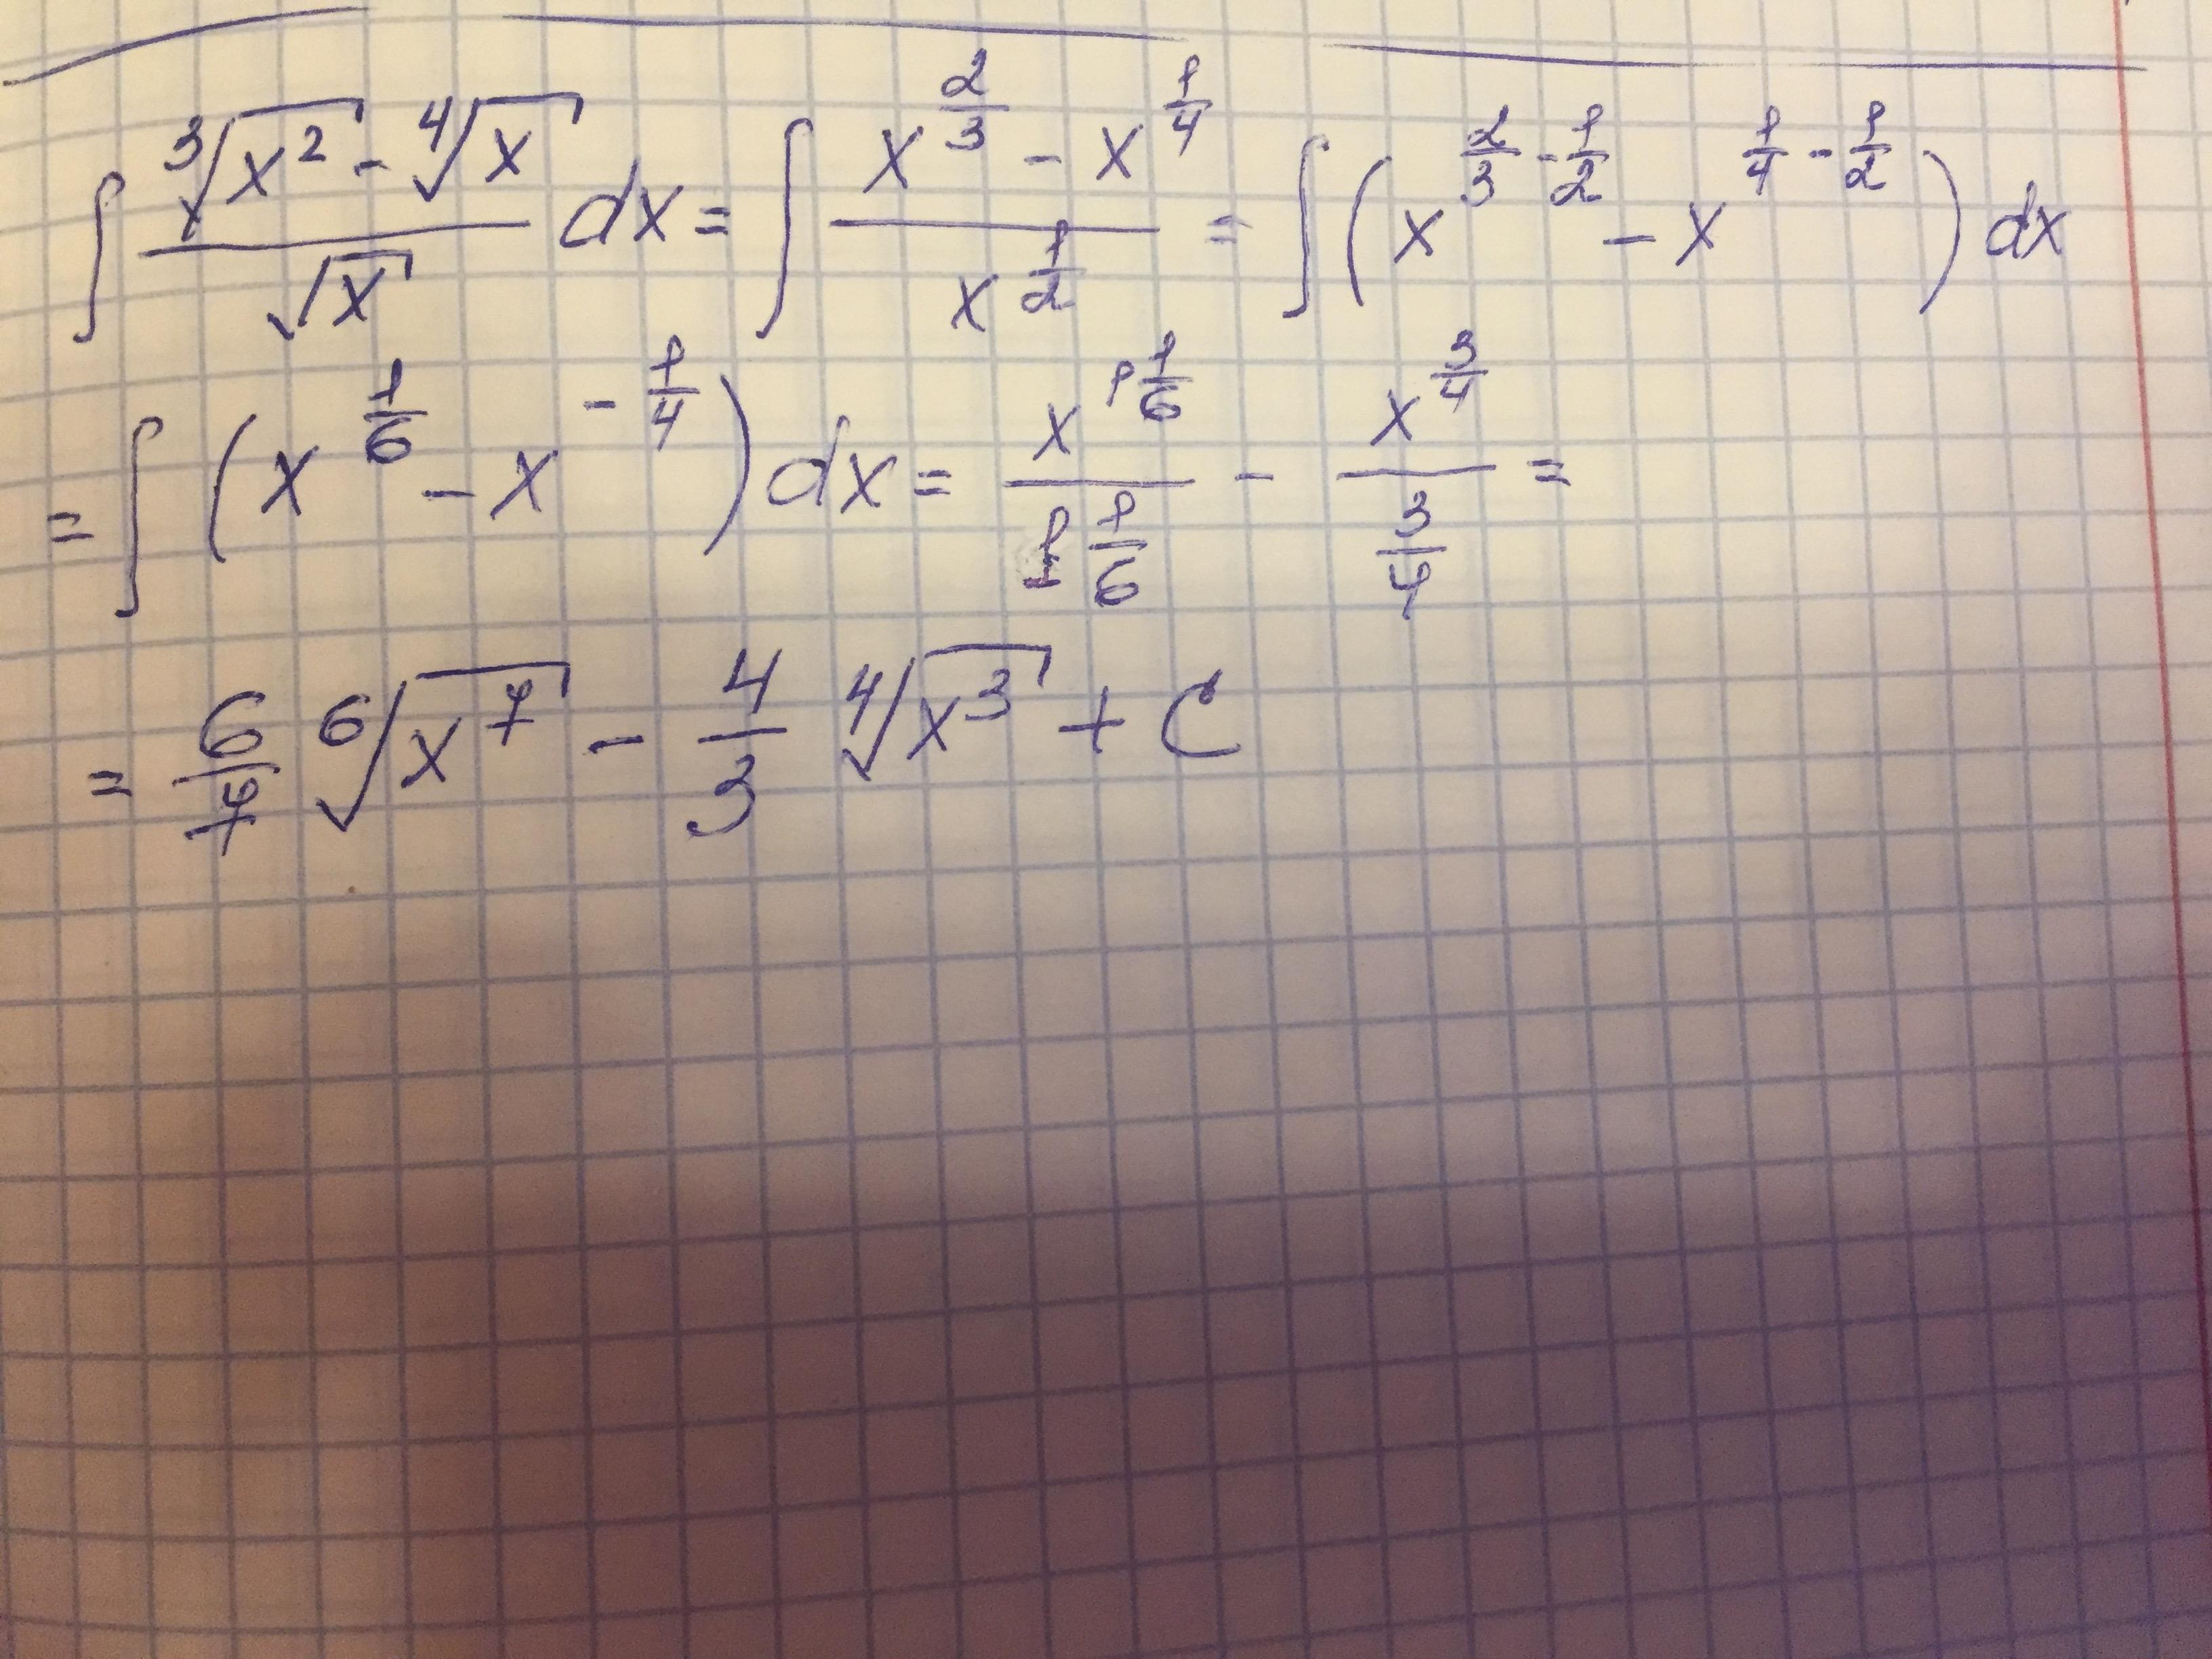 ∫ (∛(x²) - ∜x)/√x dx = ∫ (x^(2/3) - x^(1/4))/x^(1/2) = ∫ (x^(2/3 - 1/2) - x^(1/4 - 1/2)) dx
= ∫ (x^(1/6) - x^(-1/4)) dx = x^(1 1/6)/(1 1/6) - x^(3/4)/(3/4) =
= 6/7 ⁶√(x⁷) - 4/3 ∜(x³) + C